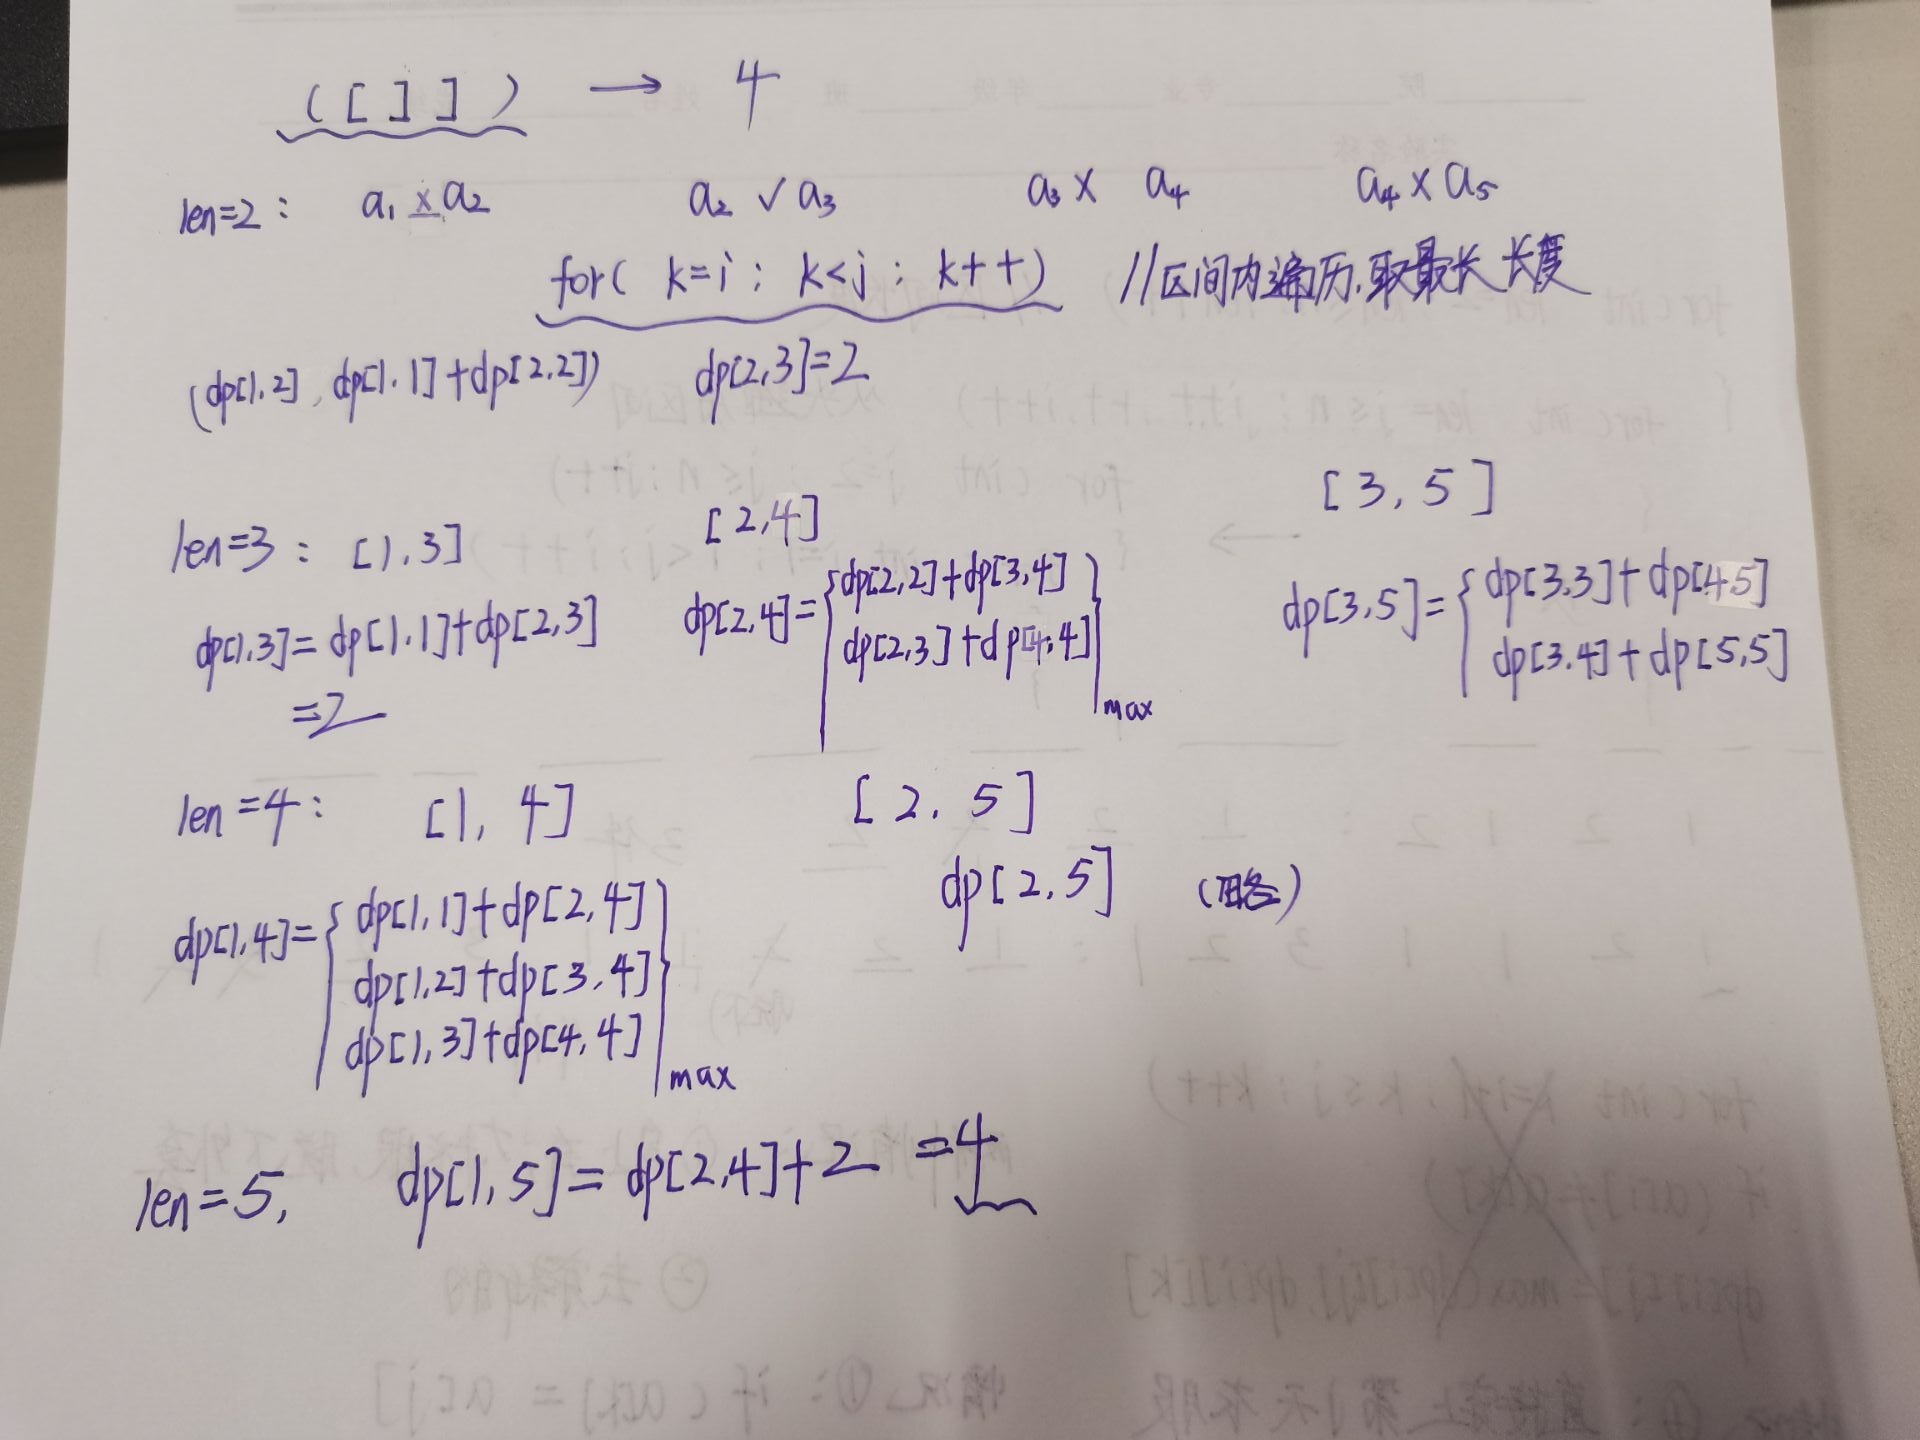 ([]]) → 4
len=2: a₁ x a₂ a₂ ✓ a₃ a₃ x a₄ a₄ x a₅
for( k=i; k<j; k++) //区间内遍历,取最长长度
(dp[1,2], dp[1,1]+dp[2,2]) dp[2,3]=2
len=3: [1,3] [2,4] [3,5]
dp[1,3]=dp[1,1]+dp[2,3] dp[2,4]={dp[2,2]+dp[3,4] dp[3,5]={dp[3,3]+dp[4,5]
=2 dp[2,3]+dp[4,4]}max dp[3,4]+dp[5,5]
len=4: [1,4] [2,5]
dp[2,5] (略)
dp[1,4]={dp[1,1]+dp[2,4]
dp[1,2]+dp[3,4]
dp[1,3]+dp[4,4]}max
len=5, dp[1,5]=dp[2,4]+2=4